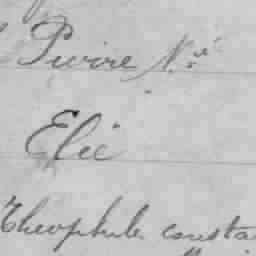 Pierre N.el
Elie
Theophile consta